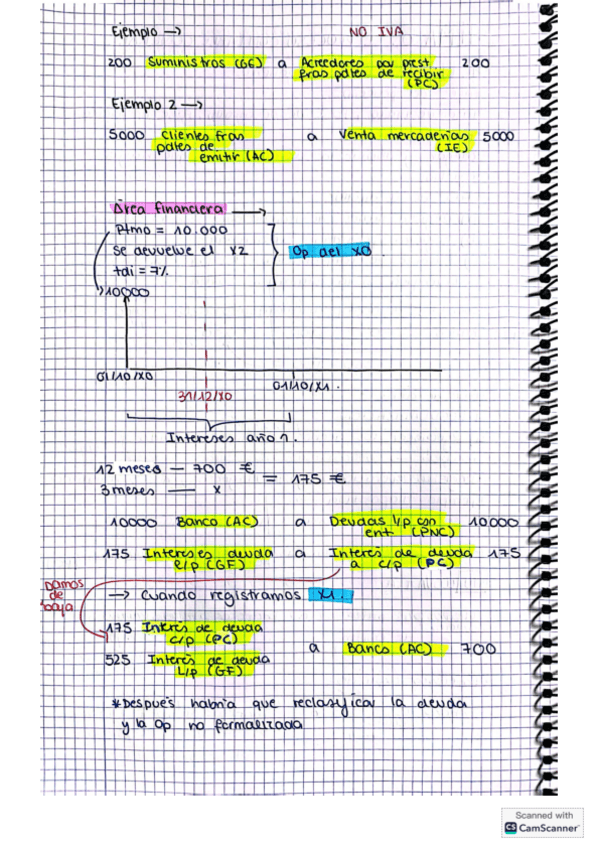 Ejemplo → NO IVA
200 Suministros (GE) a Acreedores por prest. 200
fras pdtes de recibir
(PC)
Ejemplo 2 →
5000 Clientes fras a Venta mercaderías 5000
pdtes de (IE)
emitir (AC)
Área financiera →
Ptmo = 10.000
Se devuelve el X2 Op del X0
tdi = 7%
10000
01/10/X0 01/10/X1.
31/12/X0
Intereses año 1.
12 meses — 700 €
= 175 €
3 meses — x
10000 Banco (AC) a Deudas l/p con 10000
ent. (PNC)
175 Intereses deuda a Interés de deuda 175
l/p (GF) a c/p (PC)
Damos
de
baja
→ Cuando registramos X1.
175 Interés de deuda
c/p (PC)
a Banco (AC) 700
525 Interés de deuda
L/p (GF)
*Después habría que reclasificar la deuda
y la Op no formalizada
Scanned with
CS CamScanner